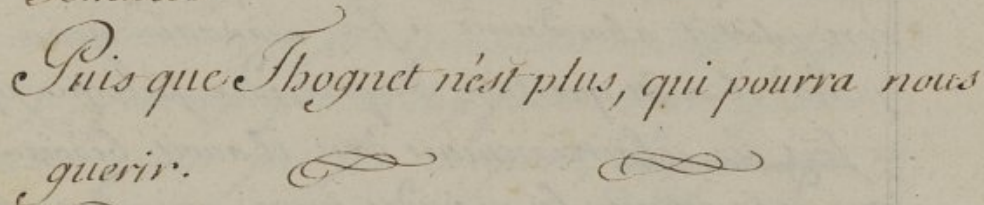 Puis que Thognet n'est plus, qui pourra nous
guerir.